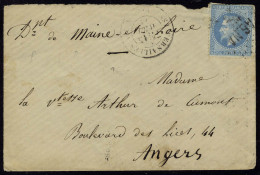 Dpt de Maine-et-Loire
Madame
la Vtesse Arthur de Cumont
Boulevard des Lices, 44
Angers